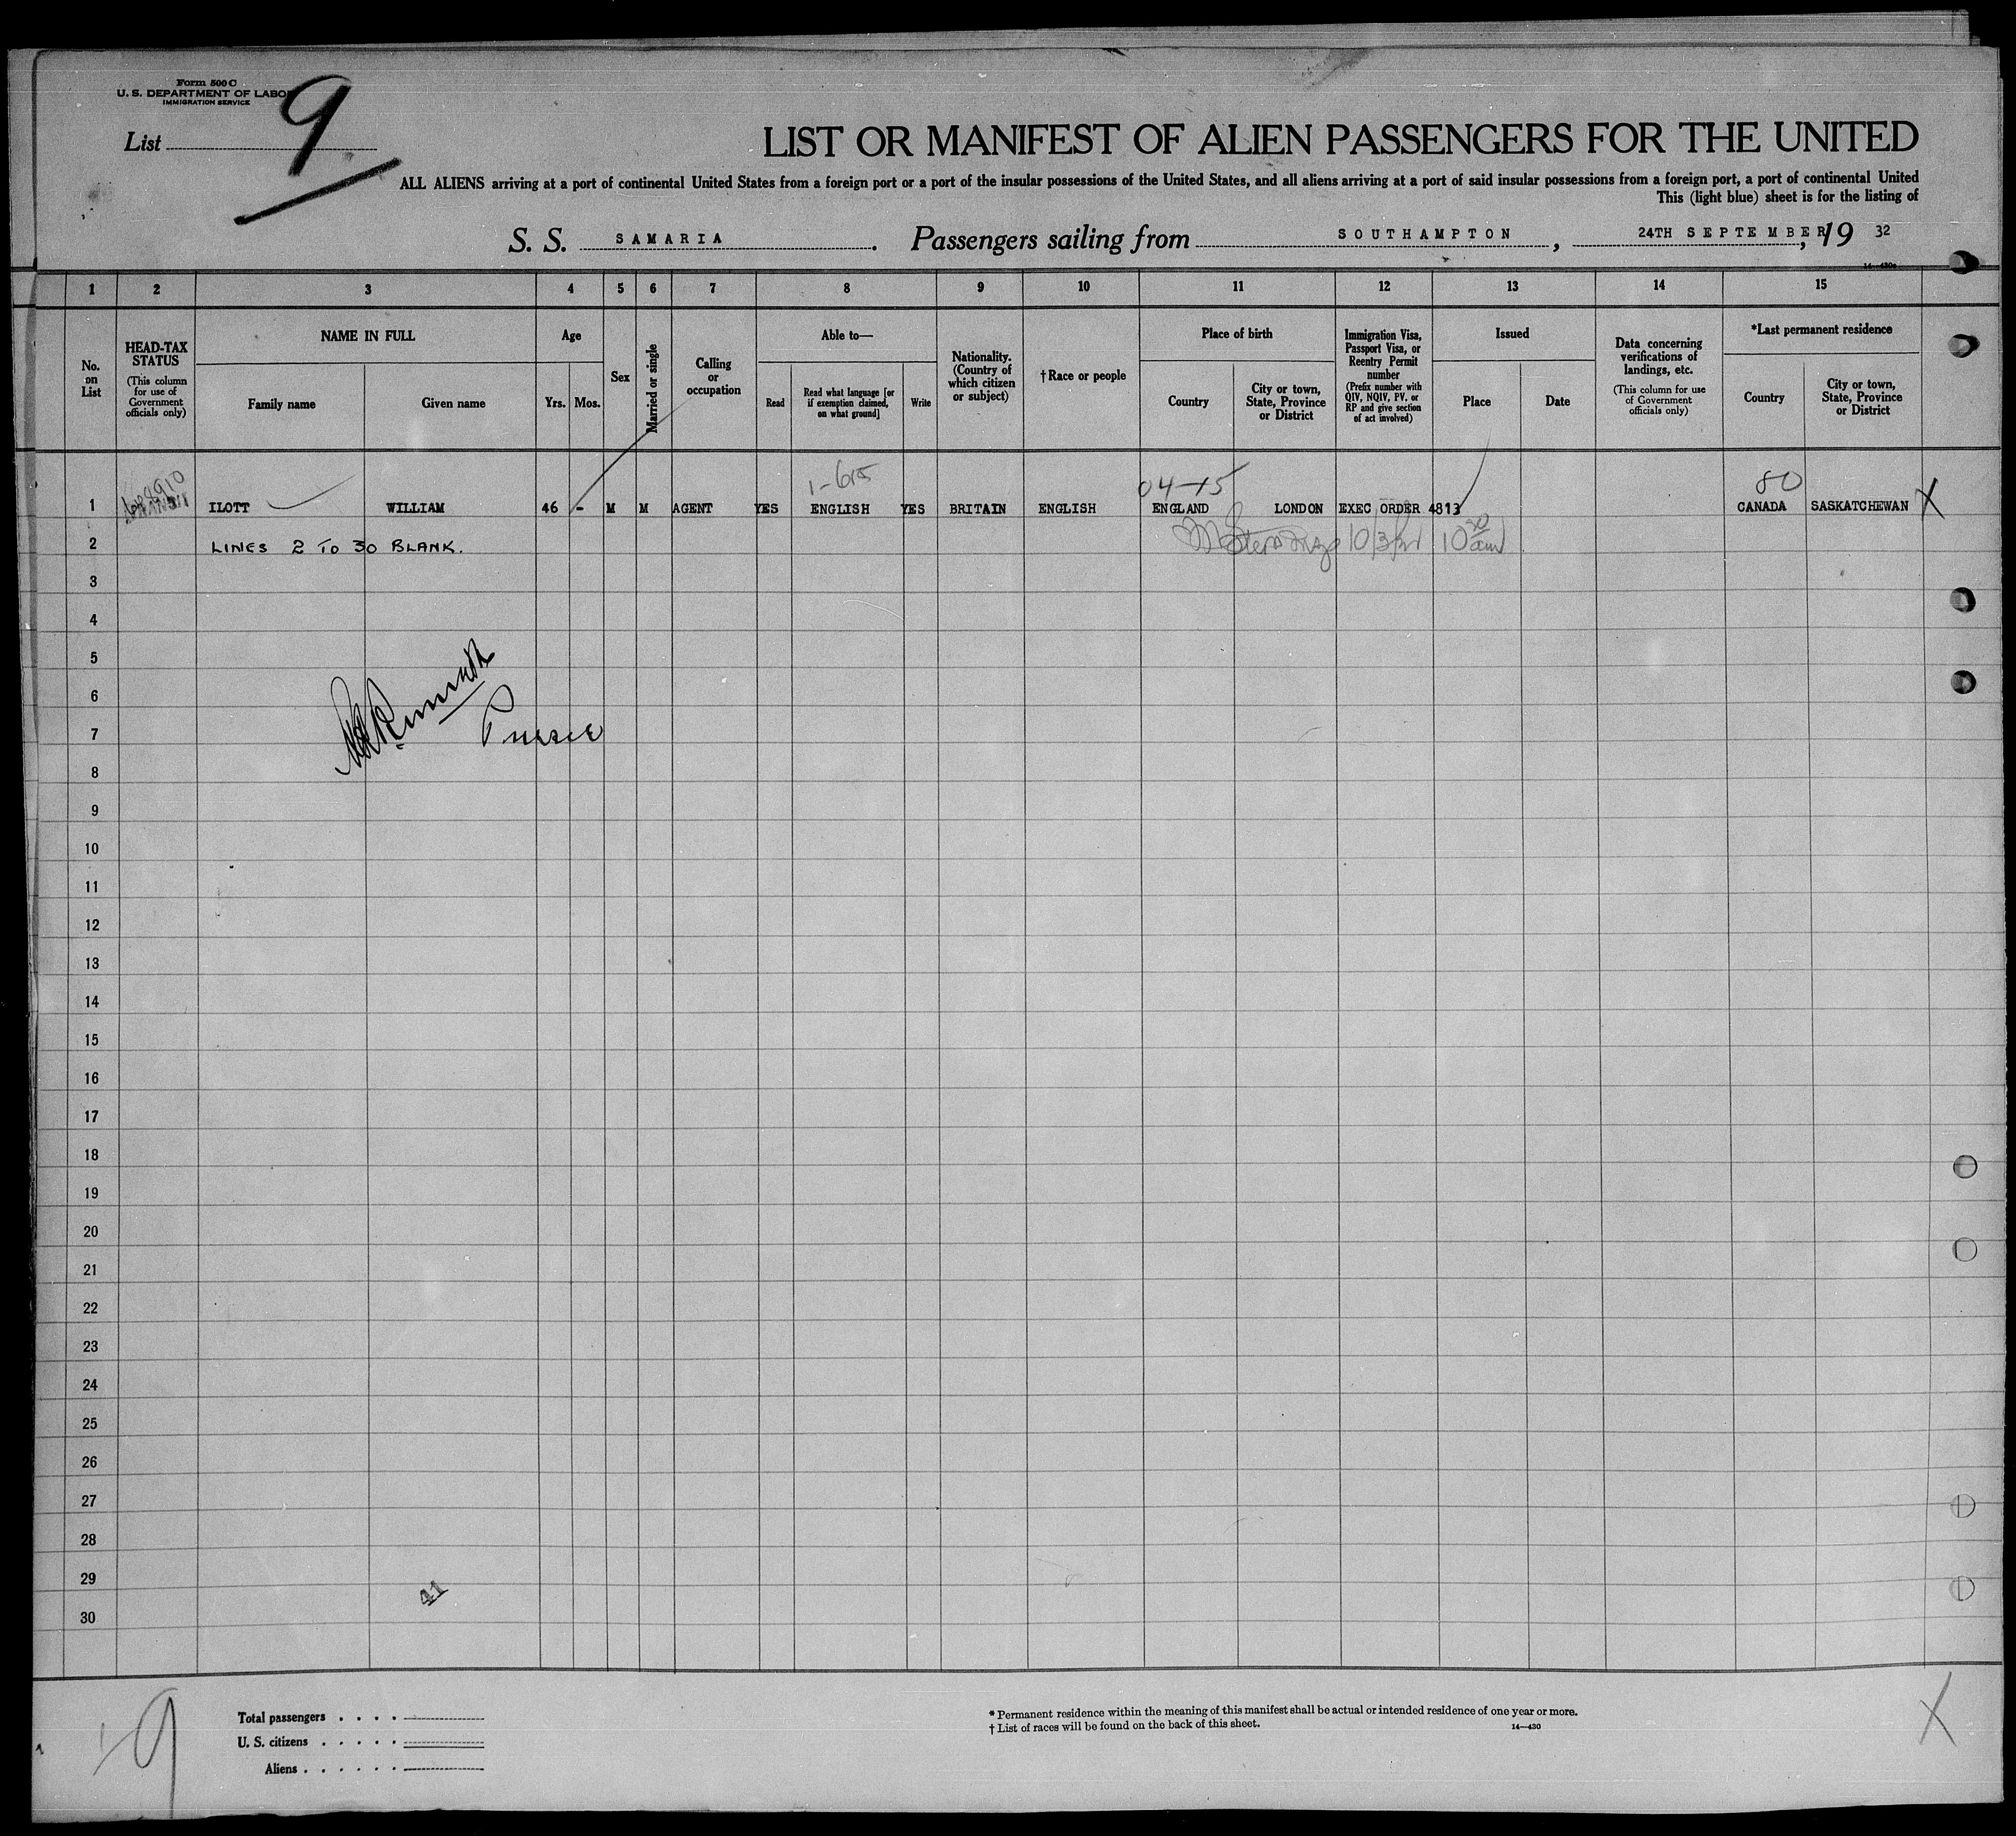 Form 500 C
U. S. DEPARTMENT OF LABOR
IMMIGRATION SERVICE
List 9
LIST OR MANIFEST OF ALIEN PASSENGERS FOR THE UNITED
ALL ALIENS arriving at a port of continental United States from a foreign port or a port of the insular possessions of the United States, and all aliens arriving at a port of said insular possessions from a foreign port, a port of continental United
This (light blue) sheet is for the listing of
S. S. SAMARIA. Passengers sailing from SOUTHAMPTON, 24TH SEPTEMBER, 19 32
14—430a
1 2 3 4 5 6 7 8 9 10 11 12 13 14 15
No. on List
HEAD-TAX STATUS (This column for use of Government officials only)
NAME IN FULL
Family name
Given name
Age
Yrs.
Mos.
Sex
Married or single
Calling or occupation
Able to—
Read
Read what language [or if exemption claimed, on what ground]
Write
Nationality. (Country of which citizen or subject)
†Race or people
Place of birth
Country
City or town, State, Province or District
Immigration Visa, Passport Visa, or Reentry Permit number (Prefix number with QIV, NQIV, PV, or RP and give section of act involved)
Issued
Place
Date
Data concerning verifications of landings, etc. (This column for use of Government officials only)
*Last permanent residence
Country
City or town, State, Province or District
1-615 04-15 80
1 ILOTT WILLIAM 46 - M M AGENT YES ENGLISH YES BRITAIN ENGLISH ENGLAND LONDON EXEC ORDER 4813 CANADA SASKATCHEWAN X
2 LINES 2 TO 30 BLANK. 10/3/32 10 30 am
3
4
5
6
7
Purser
8
9
10
11
12
13
14
15
16
17
18
19
20
21
22
23
24
25
26
27
28
29
41
30
9
Total passengers . . . .
U. S. citizens . . . . .
Aliens . . . . . .
* Permanent residence within the meaning of this manifest shall be actual or intended residence of one year or more.
† List of races will be found on the back of this sheet.
14—430
X